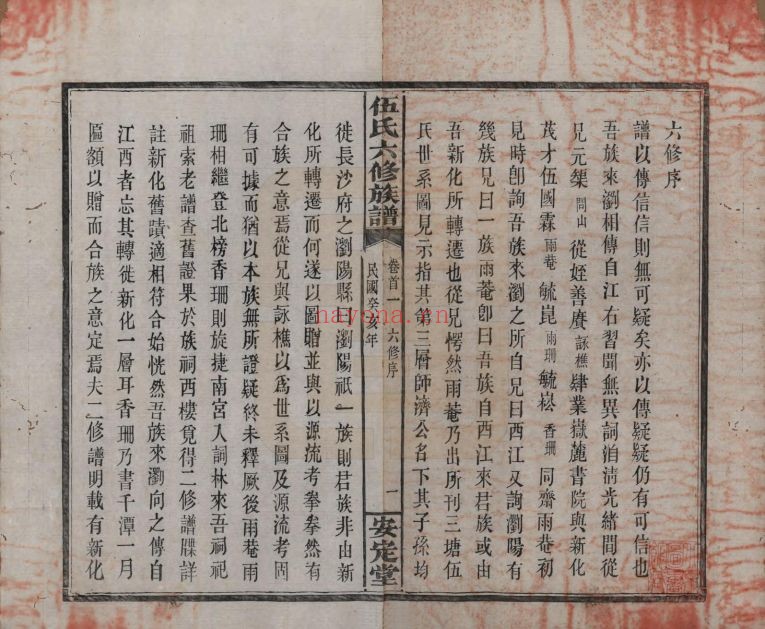 六修序
譜以傳信信則無可疑矣亦以傳疑疑仍有可信也
吾族來瀏相傳自江右習聞無異詞洎清光緒間從
兄元榘問山從姪善賡詠樵肄業嶽麓書院與新化
茂才伍國霖雨菴毓崑雨珊毓崧香珊同齋雨菴初
見時卽詢吾族來瀏之所自兄曰西江又詢瀏陽有
幾族兄曰一族雨菴卽曰吾族自西江來君族或由
吾新化所轉遷也從兄愕然雨菴乃出所刊三塘伍
氏世系圖見示指其第三層師濟公名下其子孫均
伍氏六修族譜
卷首一 六修序
民國癸亥年
一
安定堂
徙長沙府之瀏陽縣曰瀏陽祇一族則君族非由新
化所轉遷而何遂以圖贈並與以源流考拳拳然有
合族之意焉從兄與詠樵以爲世系圖及源流考固
有可據而猶以本族無所證疑終未釋厥後雨菴雨
珊相繼登北榜香珊則族捷南宮入詞林來吾祠祀
祖索老譜查舊證果於族祠西樓覓得二修譜牒詳
註新化舊蹟適相符合始恍然吾族來瀏向之傳自
江西者忘其轉徙新化一層耳香珊乃書千潭一月
匾額以贈而合族之意定焉夫二修譜明載有新化
haysna.vn